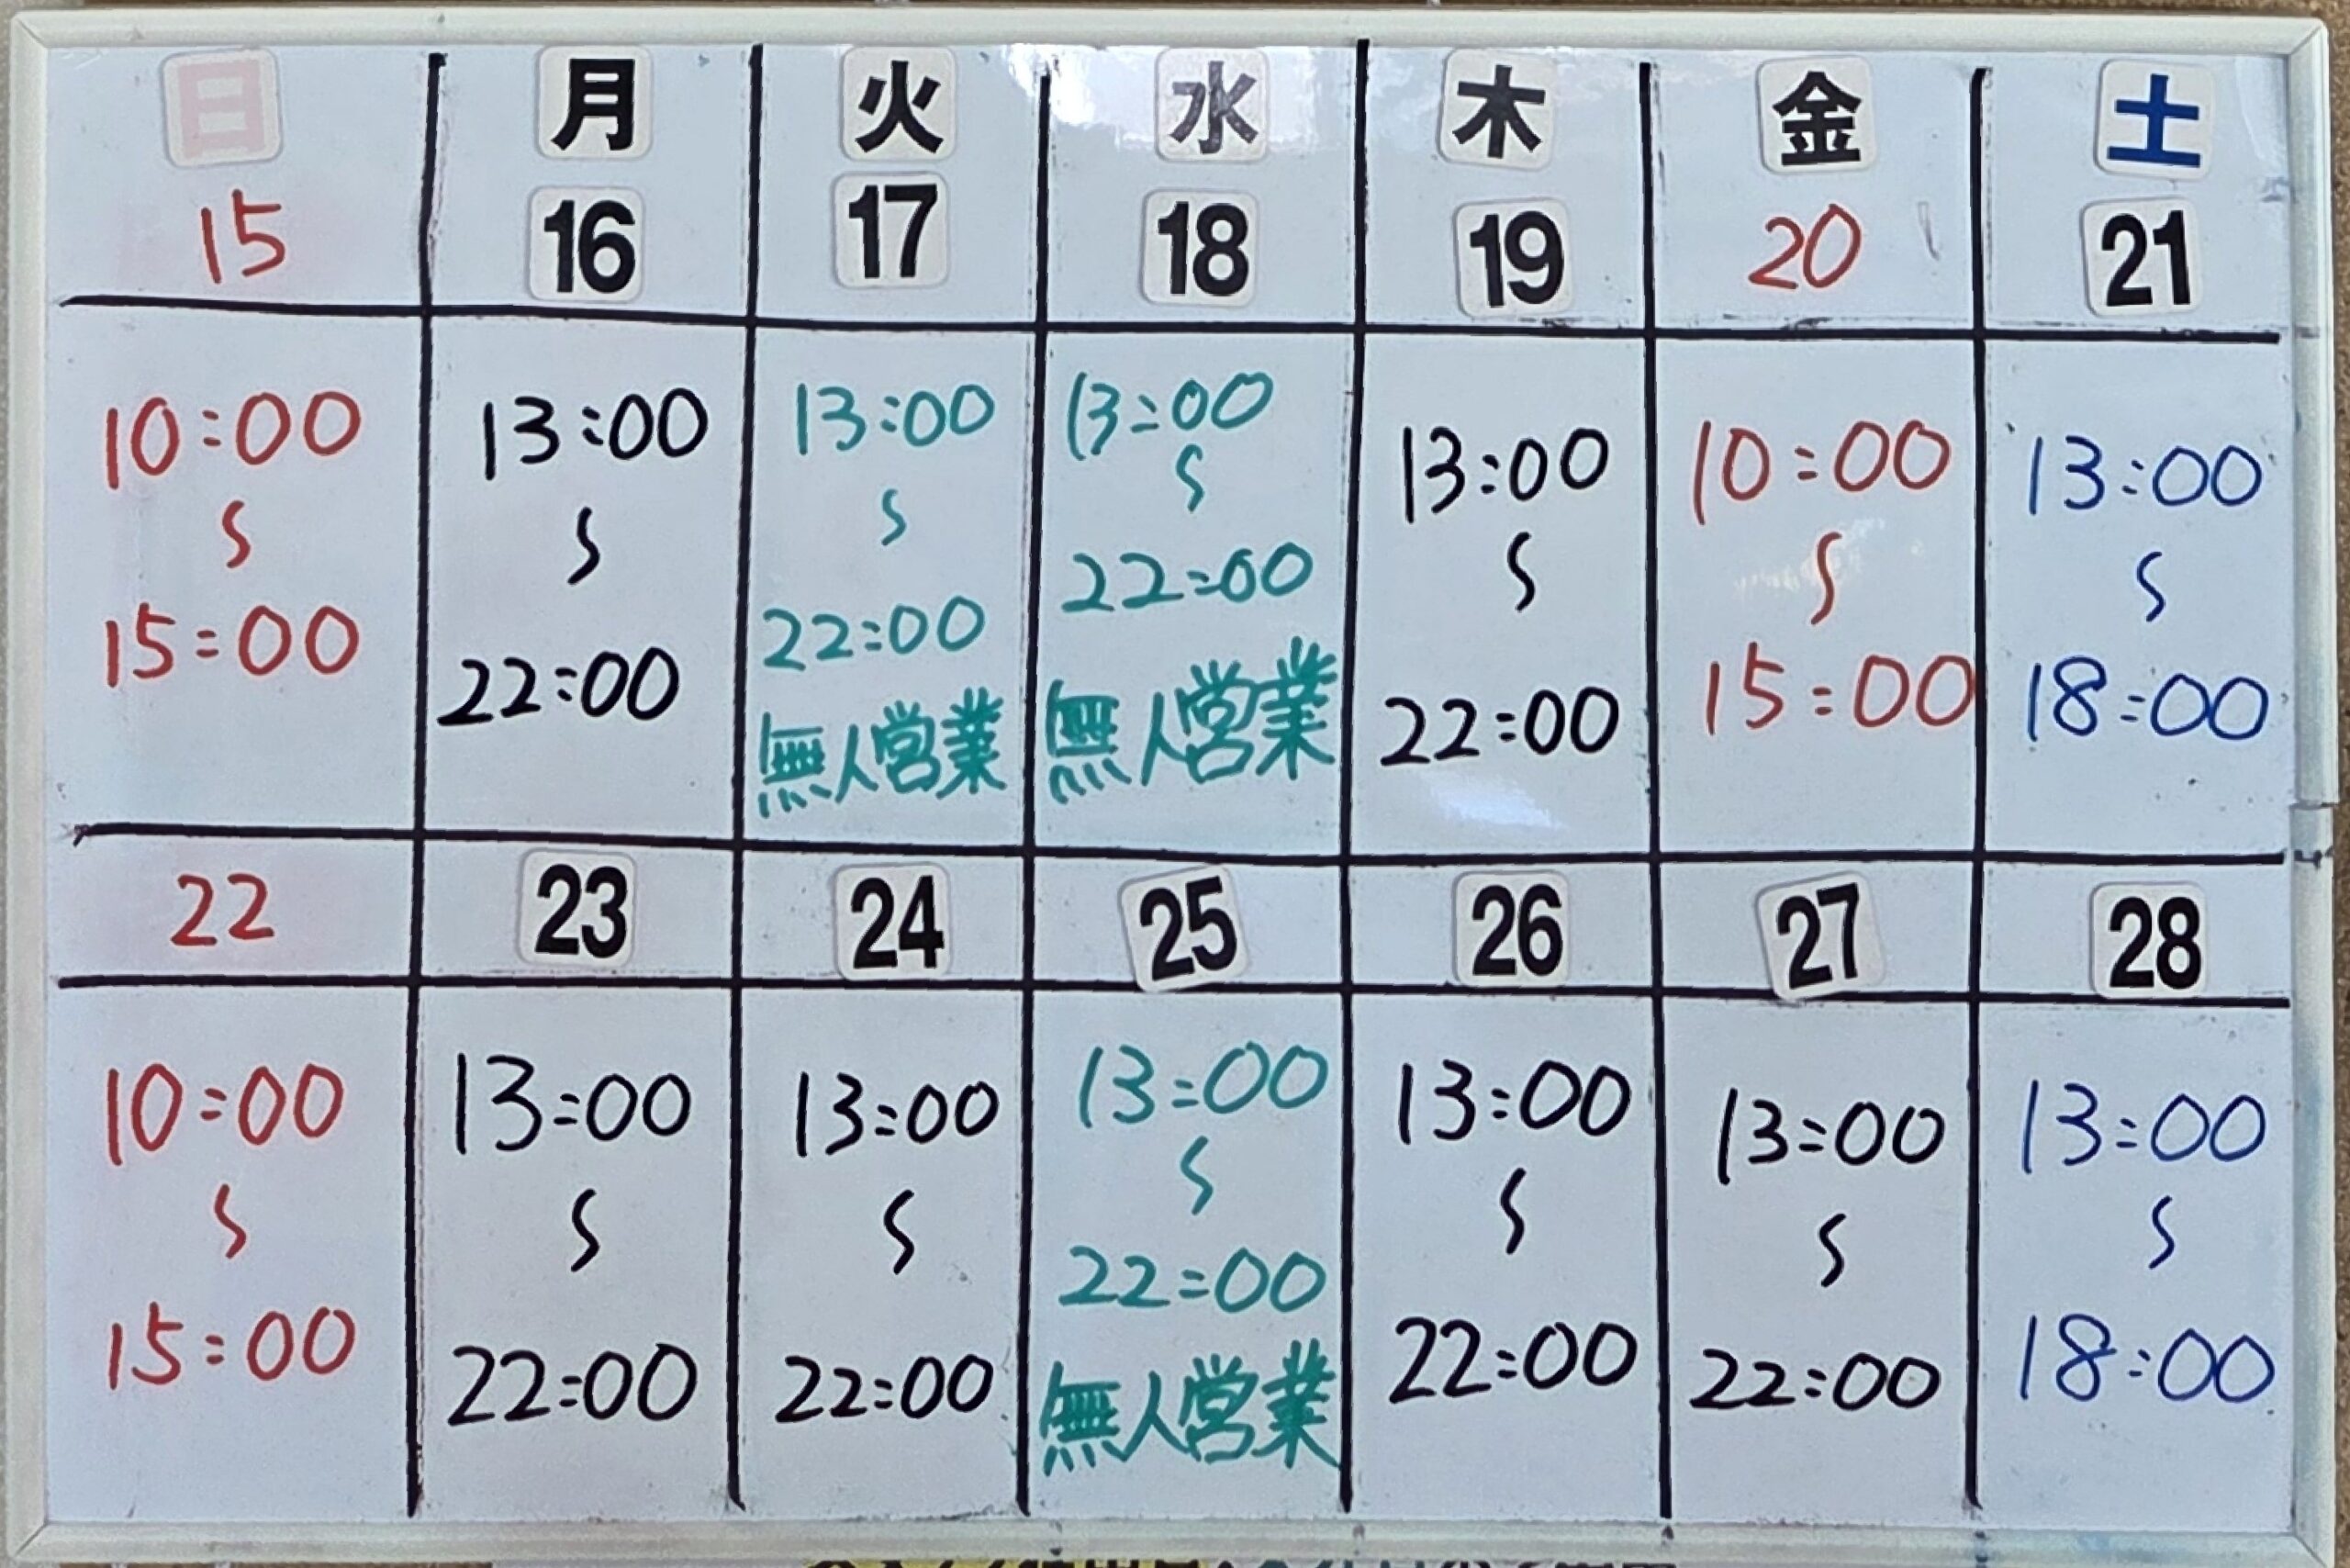 日 月 火 水 木 金 土
15 16 17 18 19 20 21
10:00 13:00 13:00 13:00 13:00 10:00 13:00
〜 〜 〜 〜 〜 〜 〜
15:00 22:00 22:00 22:00 22:00 15:00 18:00
無人営業 無人営業
22 23 24 25 26 27 28
10:00 13:00 13:00 13:00 13:00 13:00 13:00
〜 〜 〜 〜 〜 〜 〜
15:00 22:00 22:00 22:00 22:00 22:00 18:00
無人営業